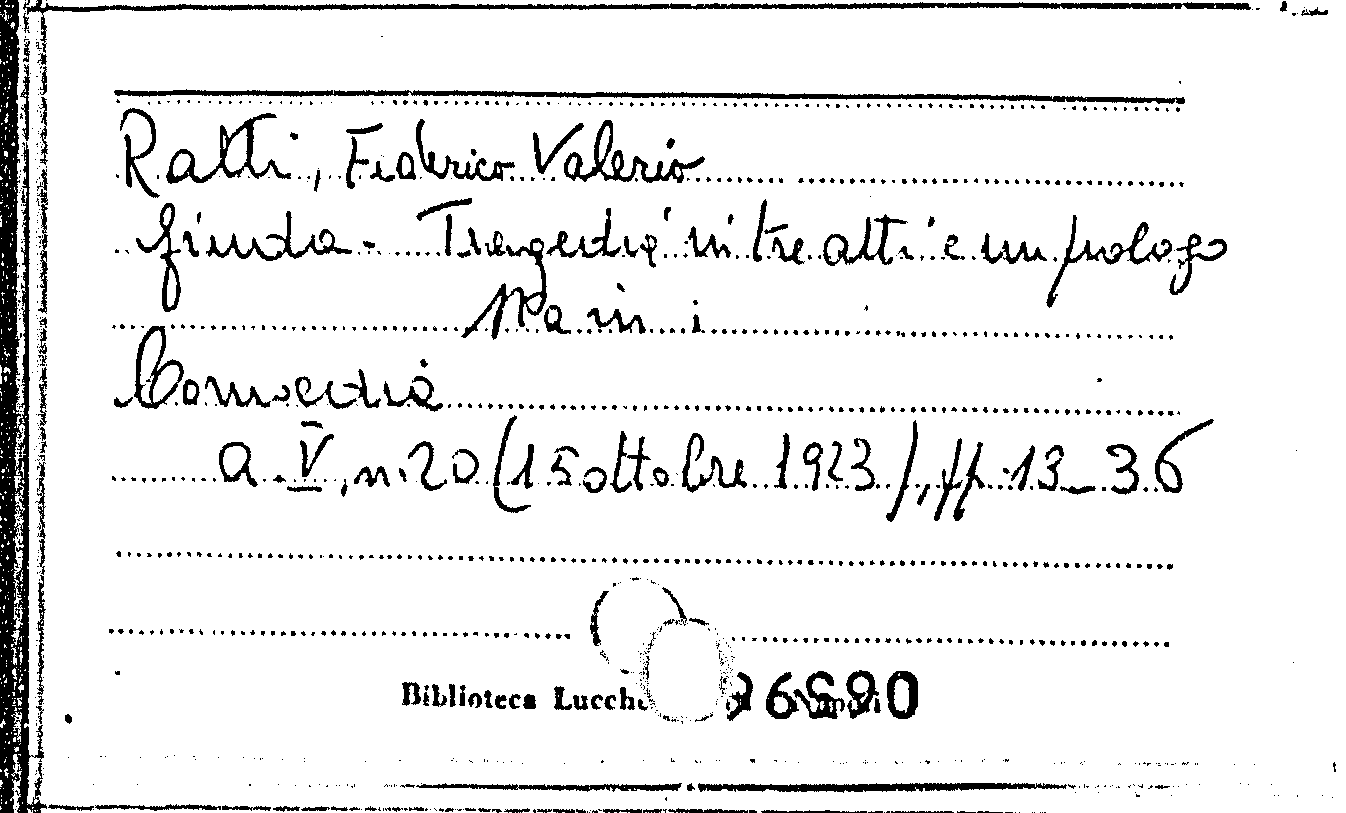 Ratti, Federico Valerio
Giuda - Tragedia in tre atti e un prologo
Comoedia
a. V, n. 20 (15 ottobre 1923), pp. 13-36
Biblioteca Lucche